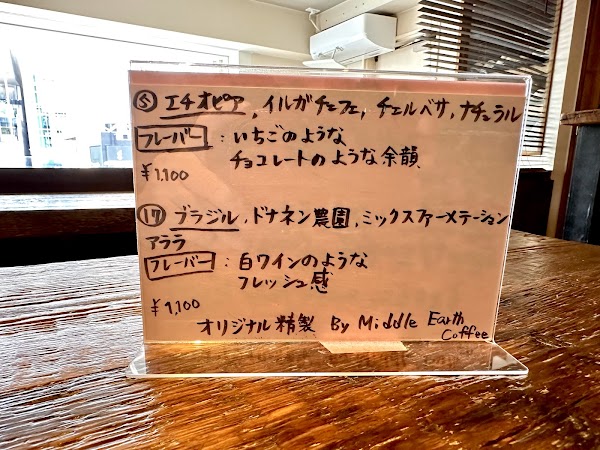 ⑤ エチオピア, イルガチェフェ, チェルベサ, ナチュラル
フレーバー : いちごのような
チョコレートのような余韻
¥1,100
⑰ ブラジル, ドナネン農園, ミックスファーメテーション
アララ
フレーバー : 白ワインのような
フレッシュ感
¥1,100
オリジナル精製 By Middle Earth
Coffee